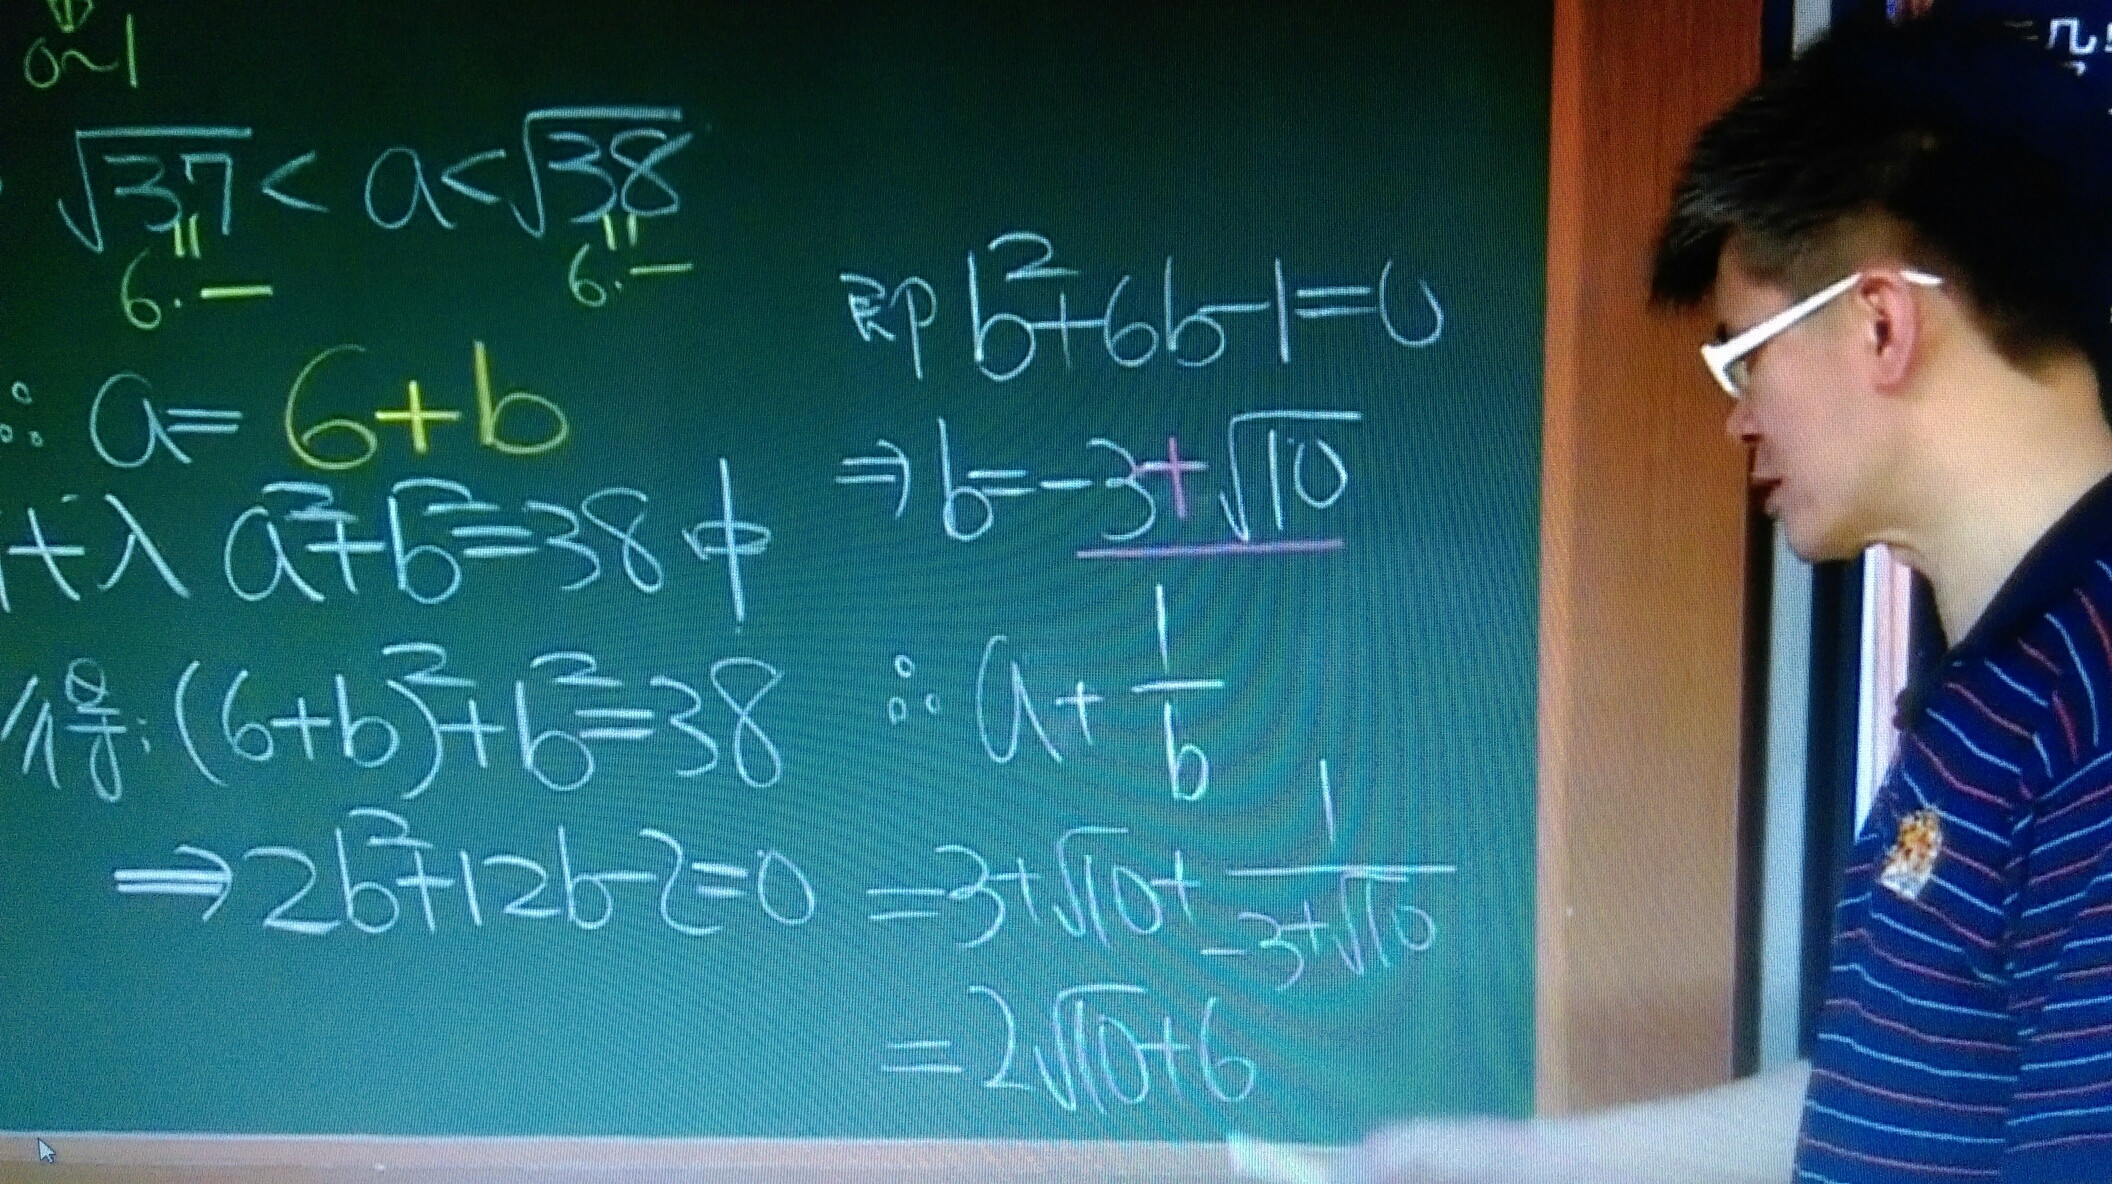 0~1
√37 < a < √38
6.— 6.—
∴ a = 6+b
代入 a²+b²=38中
得:(6+b)²+b²=38
⇒2b²+12b-2=0
即 b²+6b-1=0
⇒ b=-3+√10
∴ a+1/b
=3+√10+1/(-3+√10)
=2√10+6
几